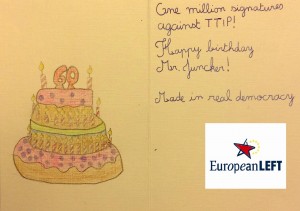 One million signatures
against TTIP!
Happy birthday
Mr. Juncker!
Made in real democracy
60
EuropeanLEFT